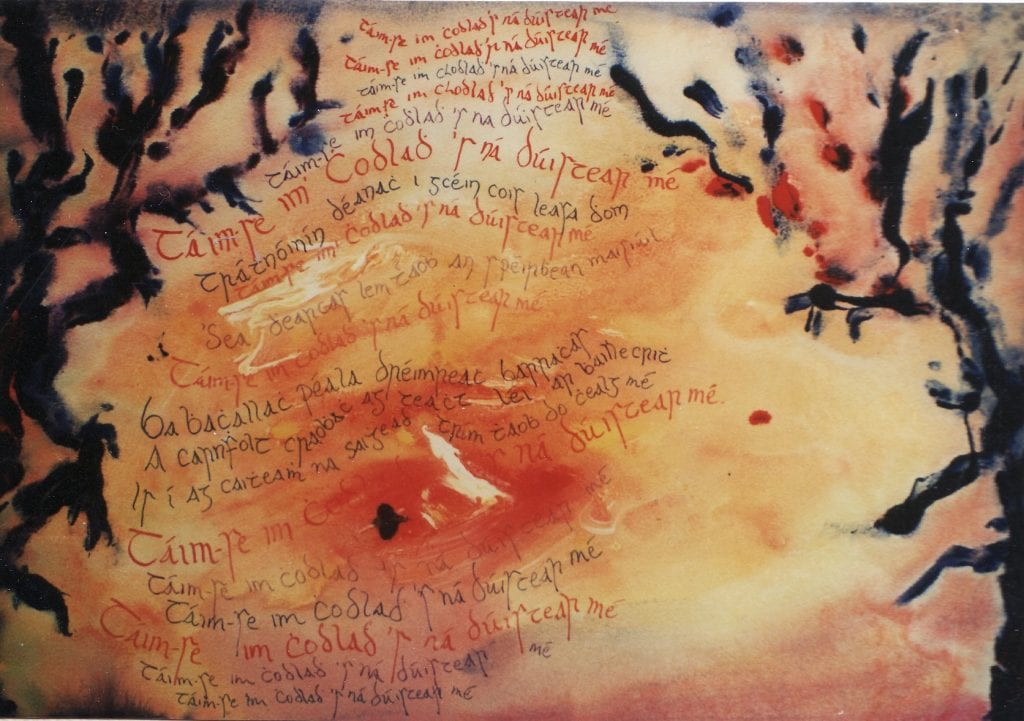 Táim-se im ċodlad 's ná dúistear mé
Táim-se im ċodlad 's ná dúistear mé
táim-se im chodlad 's ná dúistear mé
táim-se im chodlad 's ná dúistear mé
táim-se im ċodlad 's na dúistear mé
Táim-se im Codlad 's ná dúistear mé
tráthóinín déanaċ i gcéin cois leasa dom
táim-se im ċodlad 's ná dúistear mé
'Sea dearcas lem taob an spéirbean maisiúil
Táim-se im codlad 's ná dúistear mé
Ba ḃaċallaċ péala dréimreaċ barraċas
A carnfolt craobaċ ag teaċt lei ar baillecriṫ
Is í ag caiṫeaṁ na saiġead trím ṫaob do ċealg mé
Táim-se im 's ná dúistear mé.
táim-se im codlad 's ná dúistear mé
Táim-se im codlad 's ná dúistear mé
Táim-se im ċodlad 's ná dúistear mé
táim-se im ċodlad 's ná dúistear mé
táim-se im ċodlad 's ná dúistear mé